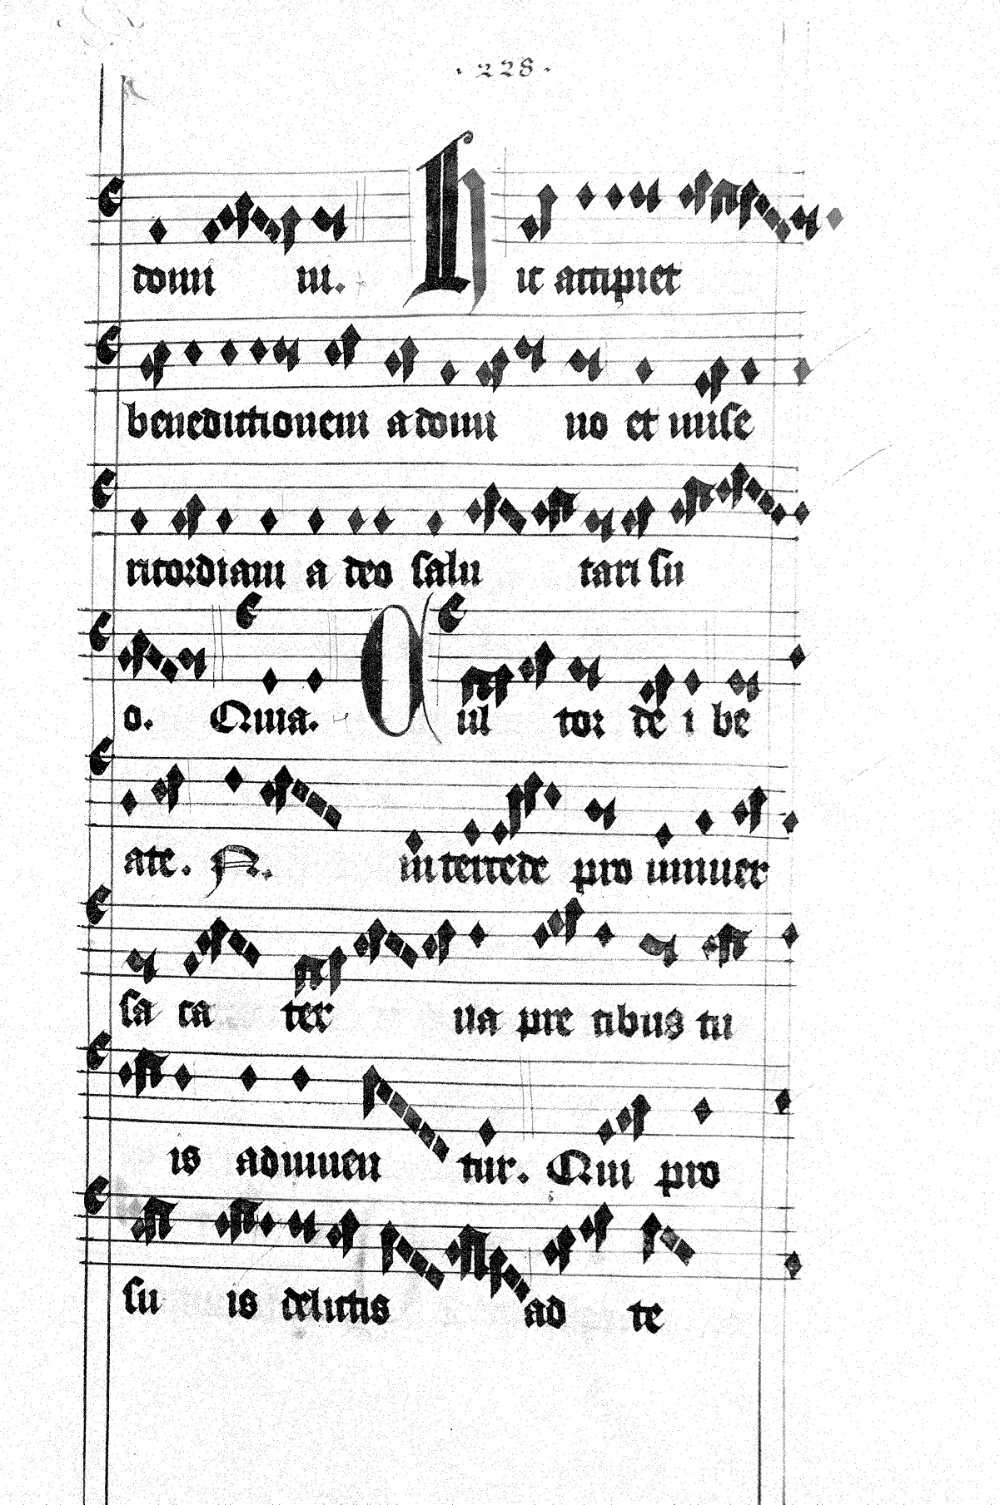 · 228 ·
domi ni. Hic accipiet
benedictionem a domi no et mise
ricordiam a deo salu tari su
o. Quia. Cul tor de i be
ate. N. intercede pro univer
sa ca ter va pre cibus tu
is adiuven tur. Qui pro
su is delictis ad te